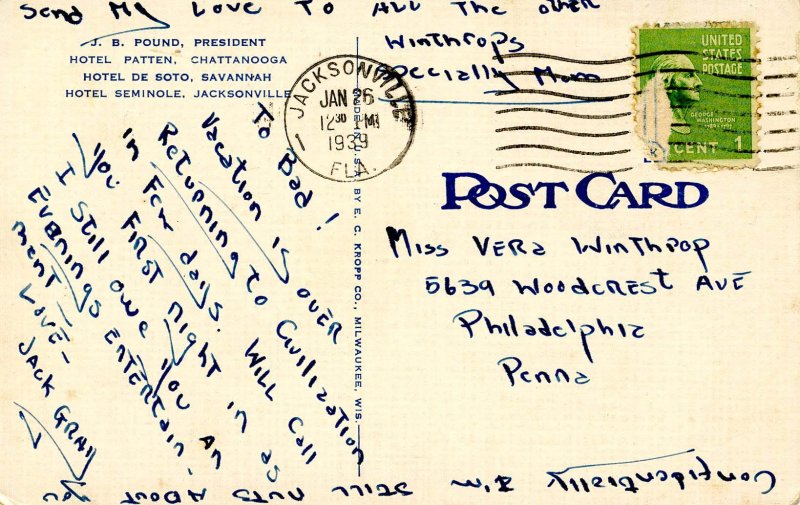 Send My Love To All The other
Winthrops
Specially Mom
J. B. POUND, PRESIDENT
HOTEL PATTEN, CHATTANOOGA
HOTEL DE SOTO, SAVANNAH
HOTEL SEMINOLE, JACKSONVILLE
JACKSONVILLE
JAN 26
12 30 PM
1939
FLA.
1
UNITED
STATES
POSTAGE
GEORGE
WASHINGTON
CENT 1
POST CARD
To Bad!
Vacation is over
Returning to Civilization
in Few days. Will Call
you First night in as
I Still owe you an
Evenings Entertain-
ment -
Love -
Jack Gray
MADE IN U.S.A. BY E. C. KROPP CO., MILWAUKEE, WIS.
Miss Vera Winthrop
5639 Woodcrest Ave
Philadelphia
Penna
Confidentially I'm still nuts about you